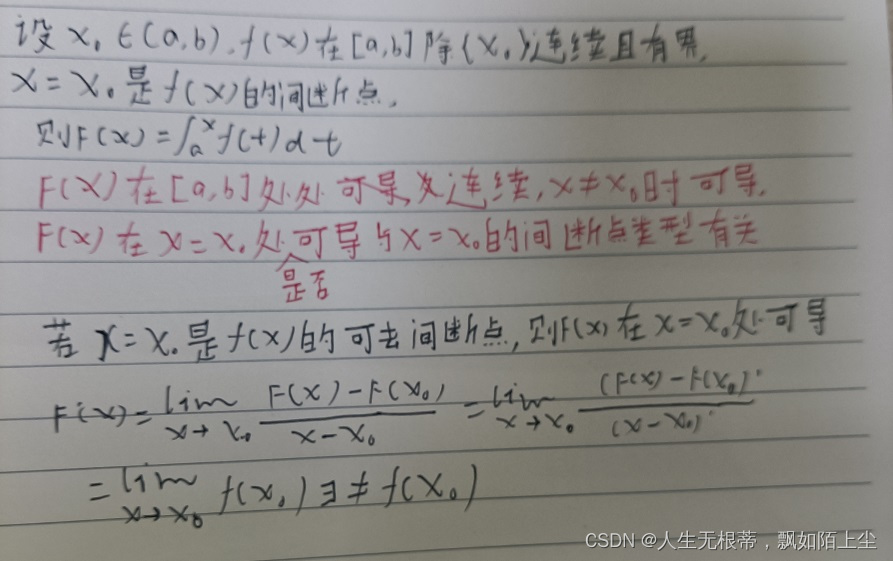 设 x₀ ∈(a,b), f(x) 在 [a,b] 除{x₀}连续且有界,
x = x₀ 是 f(x) 的间断点,
则 F(x) = ∫ₐˣ f(t) dt
F(x) 在 [a,b] 处处 连续, x ≠ x₀ 时 可导,
F(x) 在 x = x₀ 处 可导 与 x = x₀ 的间断点类型有关
是否
若 x = x₀ 是 f(x) 的可去间断点, 则F(x) 在 x = x₀ 处可导
F'(x) = lim x→x₀ (F(x) − F(x₀))/(x − x₀) = lim x→x₀ (F(x) − F(x₀))'/(x − x₀)'
= lim x→x₀ f(x) ∃ ≠ f(x₀)
CSDN @人生无根蒂，飘如陌上尘